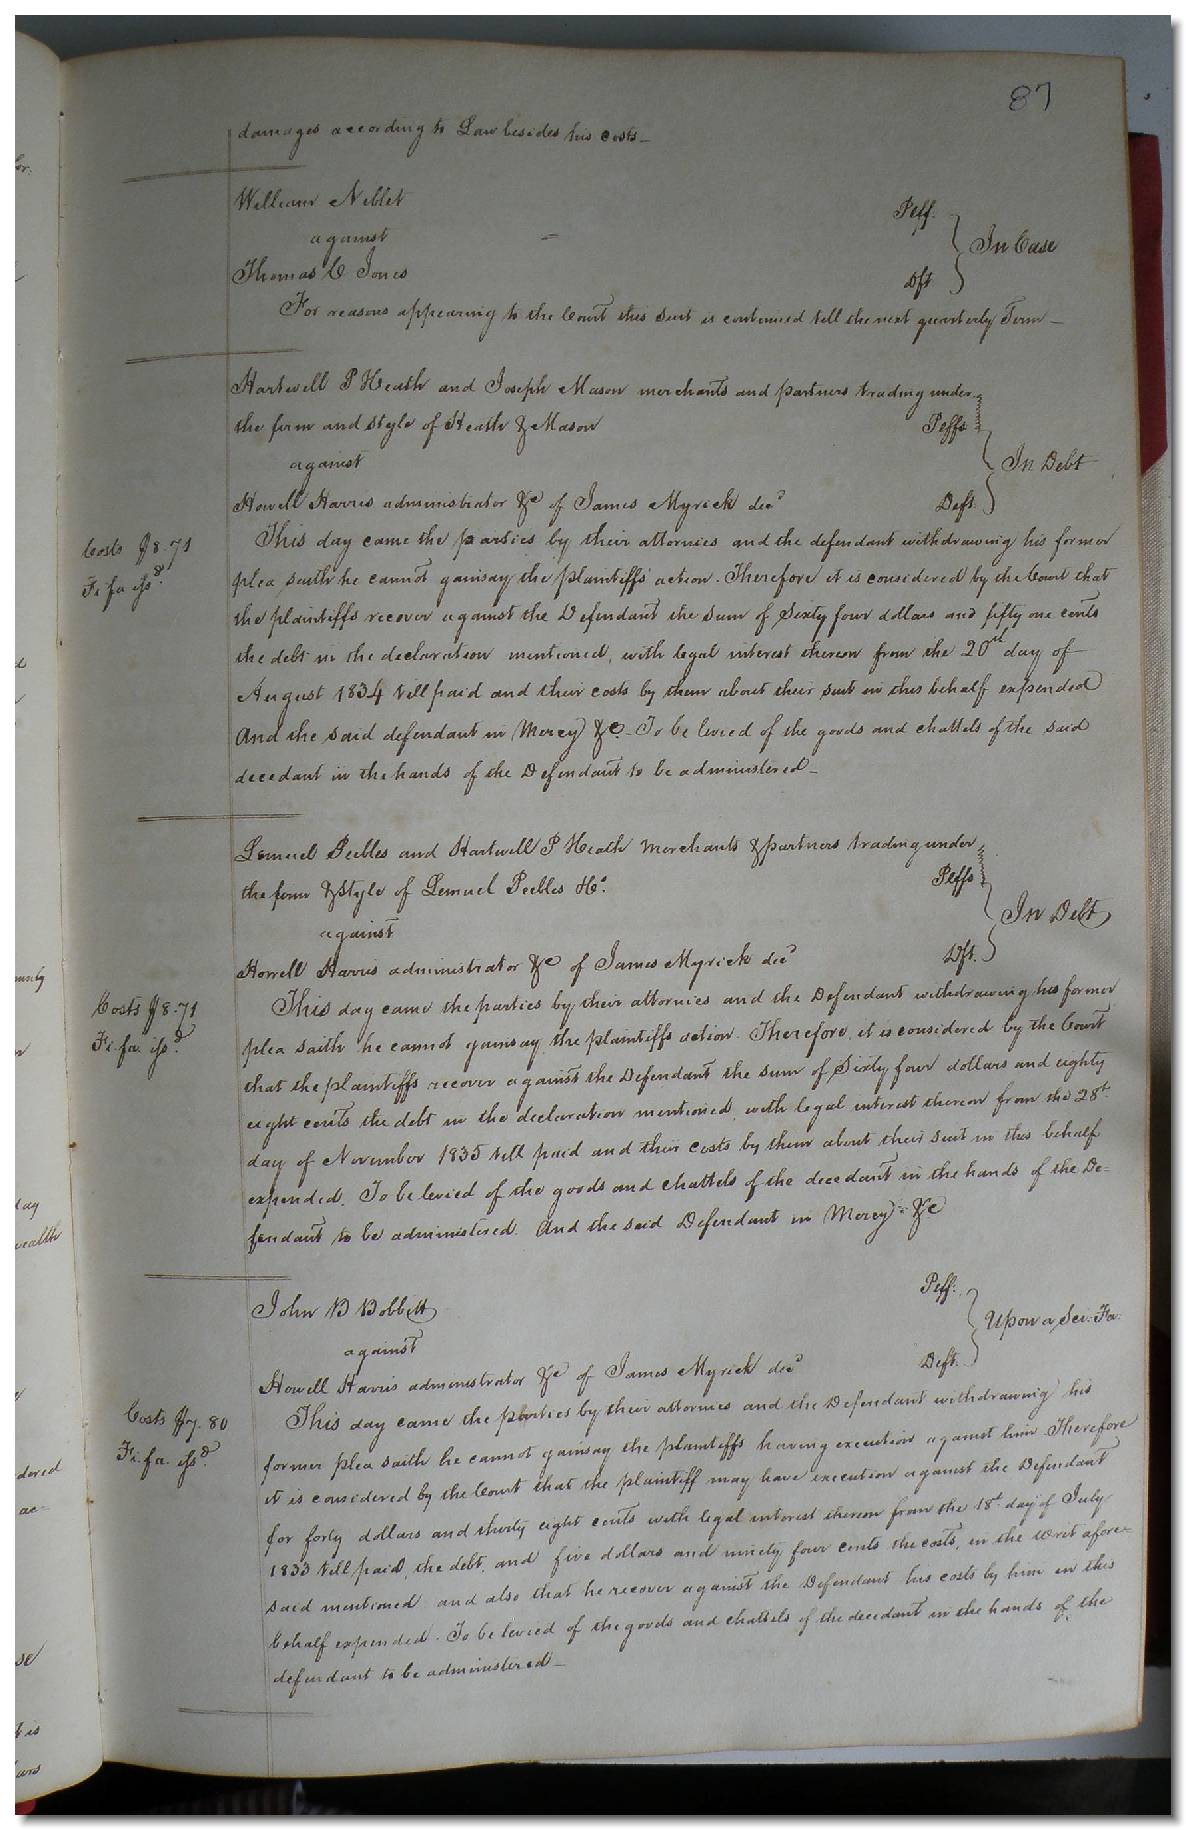 87
damages according to Law besides his costs—
William Neblet Plff.
against In Case
Thomas C Jones Dft
For reasons appearing to the Court this suit is continued till the next quarterly Term—
Hartwell P Heath and Joseph Mason merchants and partners trading under
the firm and style of Heath & Mason Plffs
against In Debt
Howell Harris administrator &c of James Myrick decd Deft.
Costs $8.71
Fi. fa issd.
This day came the parties by their attornies and the defendant withdrawing his former
plea saith he cannot gainsay the plaintiffs action. Therefore it is considered by the Court that
the plaintiffs recover against the Defendant the sum of Sixty four dollars and fifty one cents
the debt in the declaration mentioned, with legal interest thereon from the 20 day of
August 1834 till paid and their costs by them about their suit in this behalf expended
And the said defendant in Mercy &c. To be levied of the goods and chattels of the said
decedant in the hands of the Defendant to be administered—
Lemuel Peebles and Hartwell P Heath Merchants & partners trading under
the firm & Style of Lemuel Peebles & Co. Plffs
against In Debt
Howell Harris administrator &c of James Myrick decd Dft.
Costs $8.71
Fi. fa. issd.
This day came the parties by their attornies and the Defendant withdrawing his former
plea saith he cannot gainsay the plaintiffs action. Therefore, it is considered by the Court
that the plaintiffs recover against the Defendant the sum of Sixty four dollars and eighty
eight cents the debt in the declaration mentioned, with legal interest thereon from the 28t.
day of November 1835 till paid and their costs by them about their suit in this behalf
expended. To be levied of the goods and chattels of the decedant in the hands of the De=
fendant to be administered. And the said Defendant in Mercy &c
John B Bobbitt Plff.
against Upon a Sci. Fa.
Howell Harris administrator &c of James Myrick decd Deft.
Costs $7.80
Fi. fa. issd.
This day came the parties by their attornies and the Defendant withdrawing his
former plea saith he cannot gainsay the plaintiffs having execution against him. Therefore
it is considered by the Court that the plaintiff may have execution against the Defendant
for forty dollars and thirty eight cents with legal interest thereon from the 18t. day of July
1833 till paid, the debt, and five dollars and ninety four cents the costs, in the writ afore=
said mentioned and also that he recover against the Defendant his costs by him in this
behalf expended. To be levied of the goods and chattels of the decedant in the hands of the
defendant to be administered—